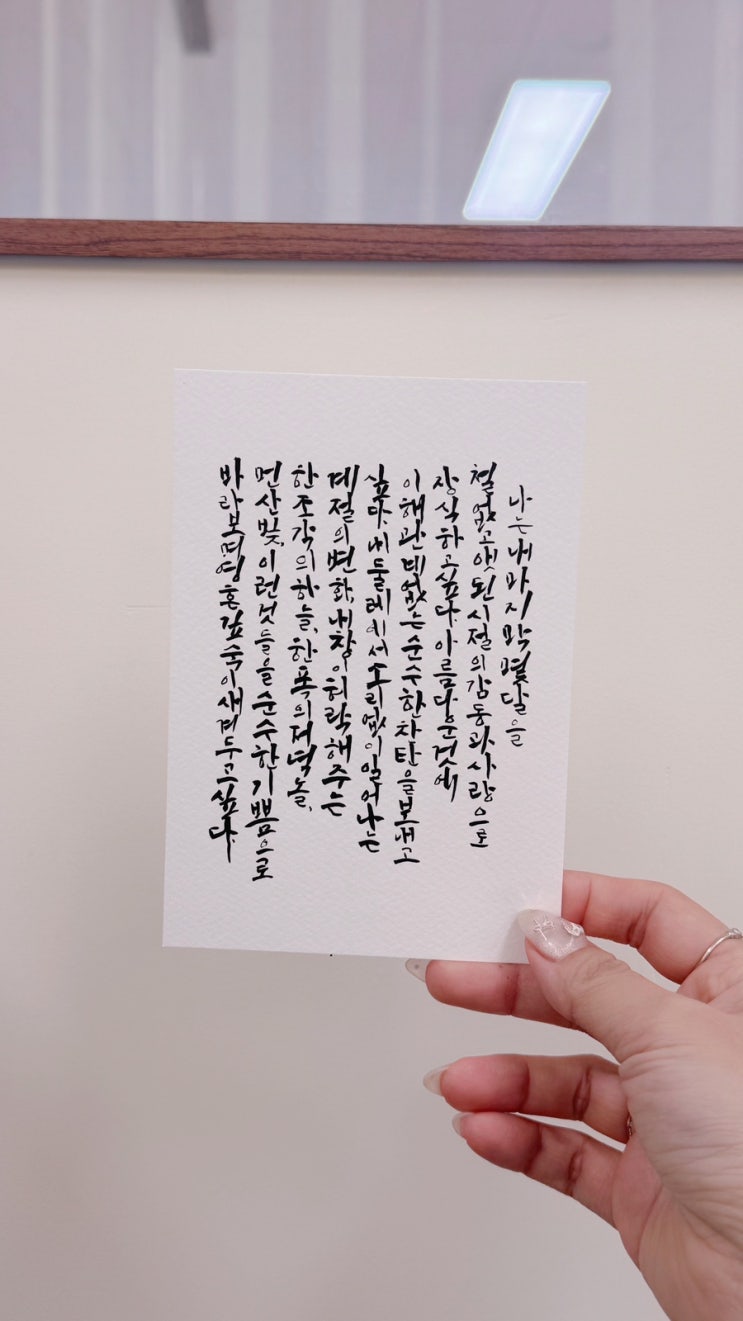 나는 내 마지막 몇 달을
철없고 앳된 시절의 감동과 사랑으로
장식하고 싶다. 아름다운 것에
이해관계 없는 순수한 찬탄을 보내고
싶다. 내 둘레에서 소리없이 일어나는
계절의 변화, 내 창이 허락해주는
한 조각의 하늘, 한 폭의 저녁놀,
먼 산빛, 이런 것들을 순수한 기쁨으로
바라보며 영혼 깊숙이 새겨두고 싶다.